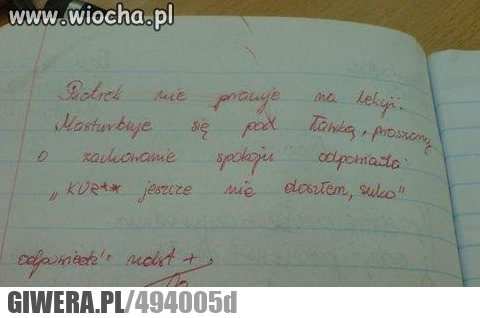 www.wiocha.pl
Piotrek nie pracuje na lekcji.
Masturbuje się pod ławką, proszony
o zachowanie spokoju odpowiada:
„KUR** jeszcze nie doszłem, suko”
odpowiedź: ndst +
GIWERA.PL/494005d